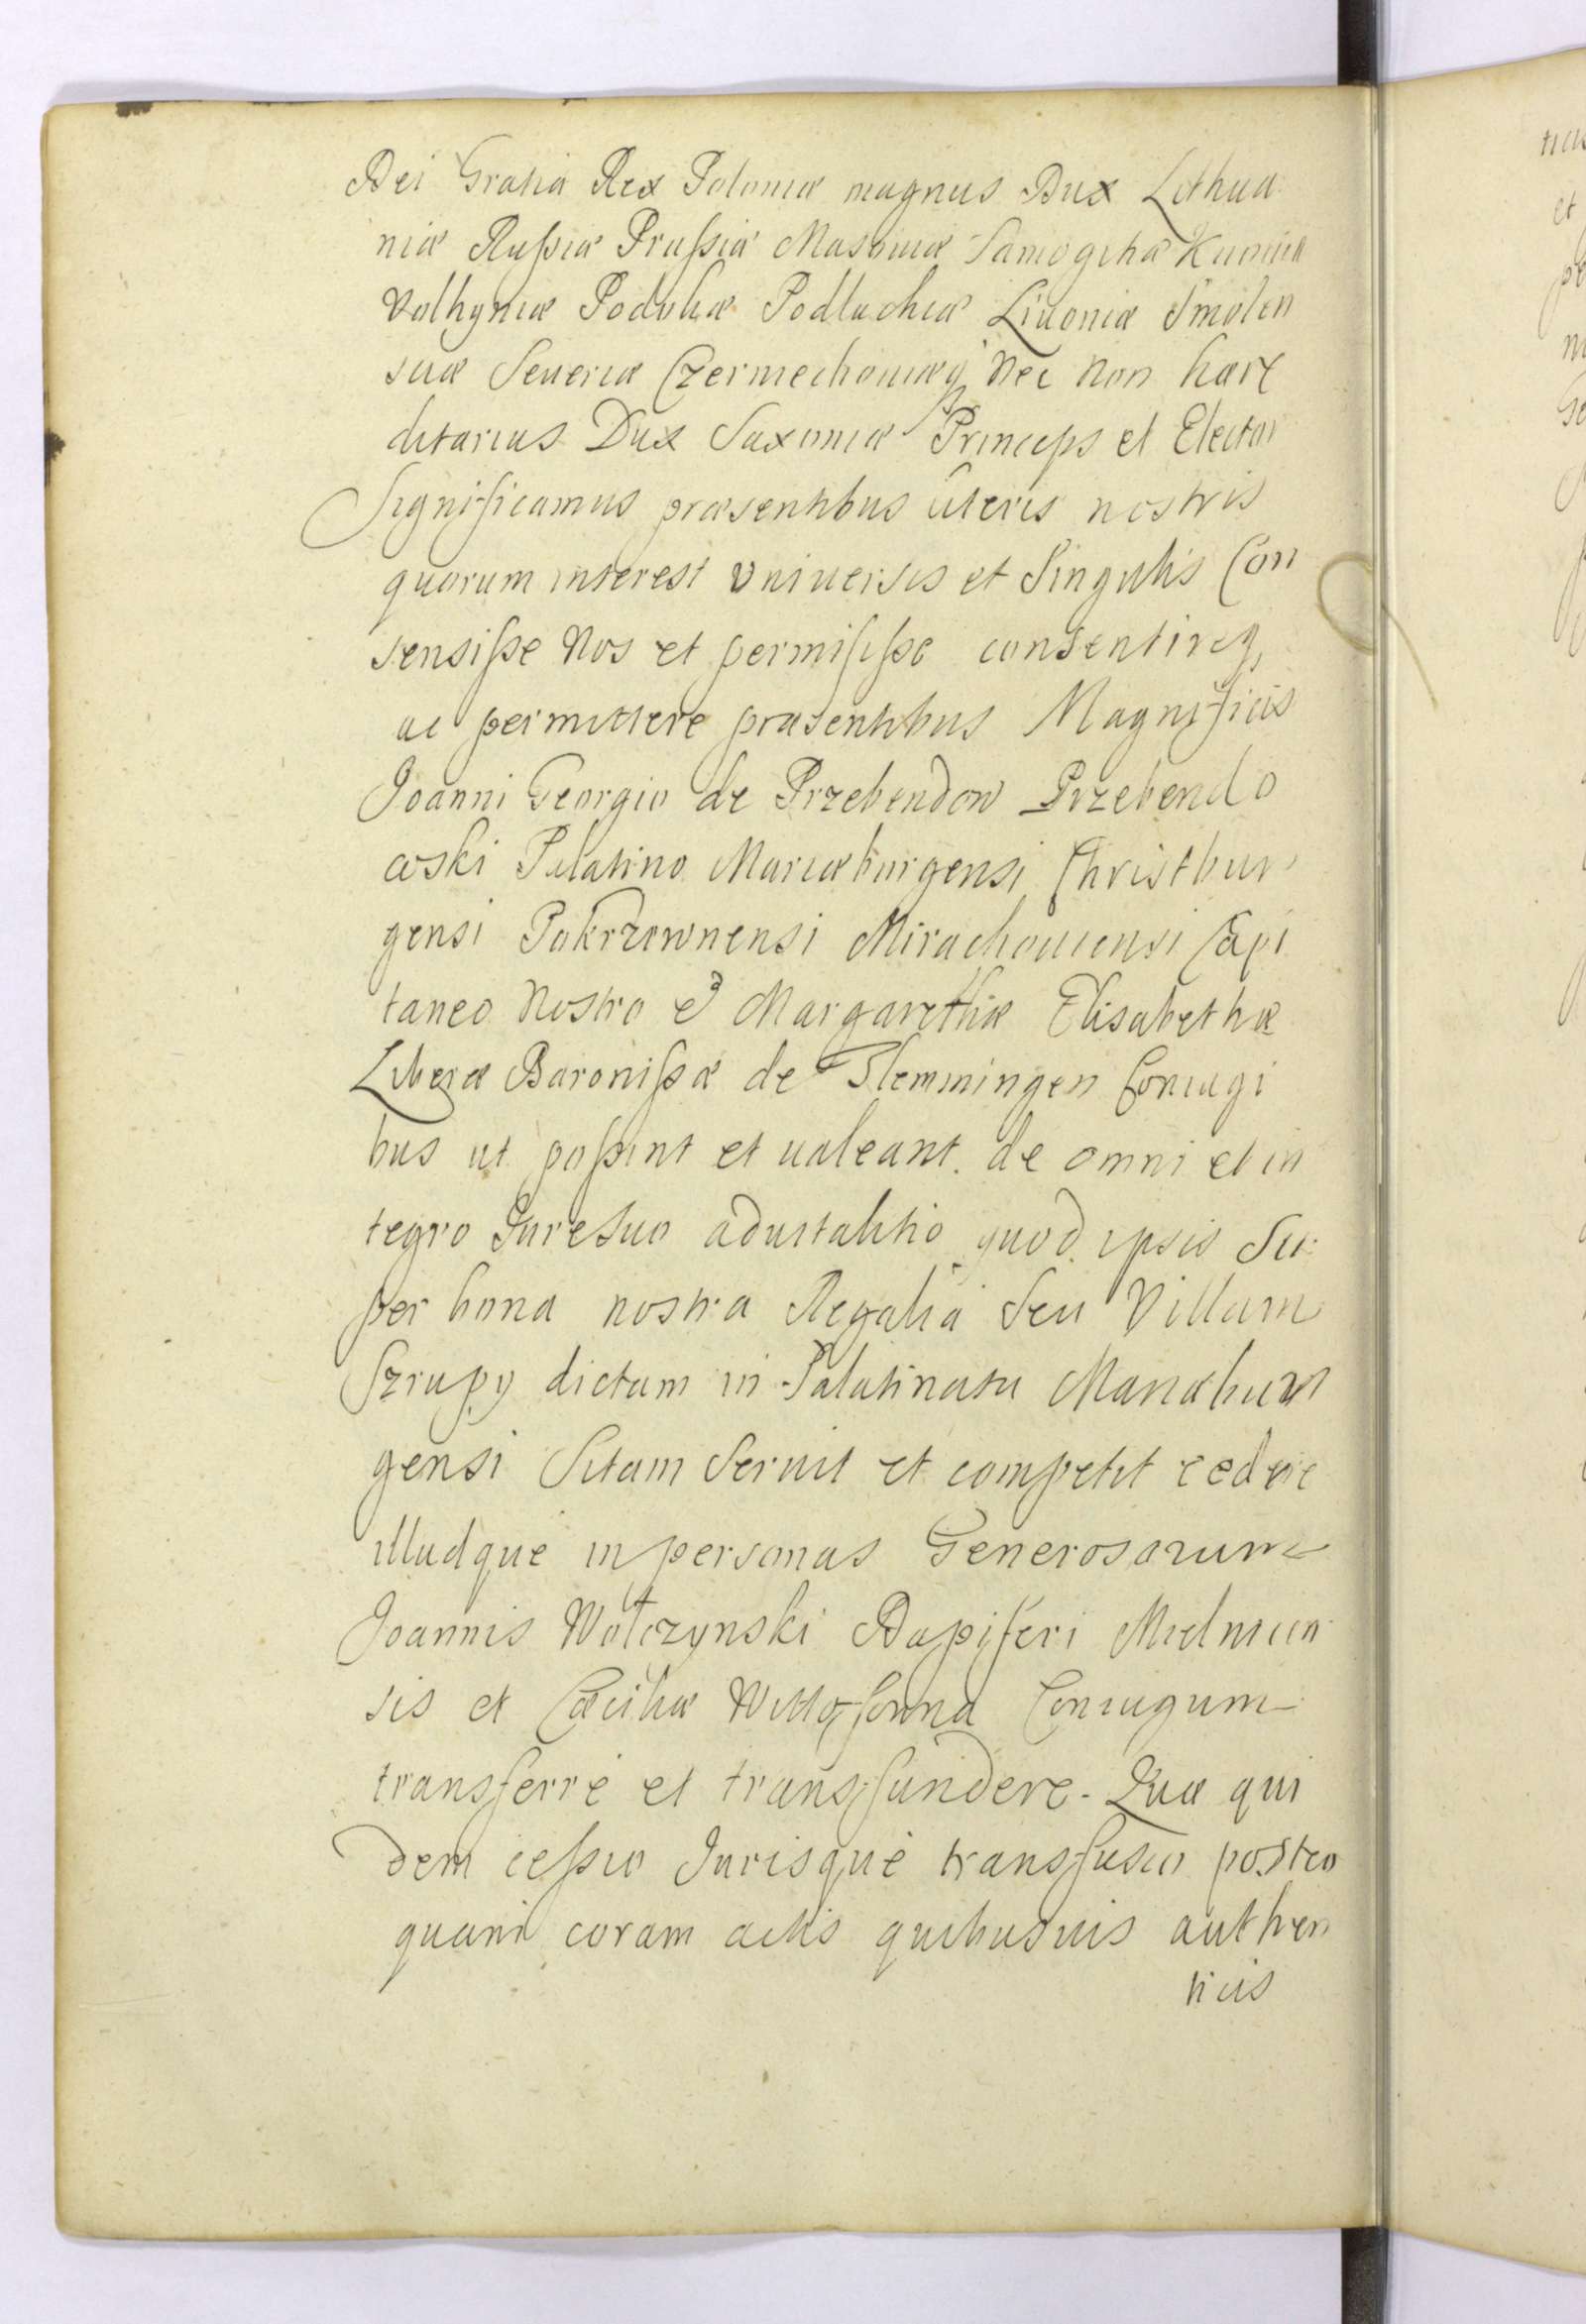 Dei Gratia Rex Poloniæ magnus Dux Lithua
niæ Russiæ Prussiæ Masoviæ Samogitiæ Kiioviæ
Volhyniæ Podoliæ Podlachiæ Livoniæ Smolen
sciæ Seueriæ Czerniechouiæq Nec Non hære
ditarius Dux Saxoniæ Princeps et Elector
Significamus præsentibus literis nostris
quorum interest vniuersis et Singulis Con
sensisse Nos et permisisse consentireq
ac permittere præsentibus Magnificis
Joanni Georgio de Przebendow Przebendo
wski Palatino Mariæburgensi Christbur
gensi Pokrzewnensi Mirachouiensi Capi
taneo Nostro et Margarethæ Elisabethæ
Liberæ Baronissæ de Flemmingen Coniugi
bus ut possint et ualeant de omni et in
tegro Jure suo aduitalitio quod ipsis Su
per bona nostra Regalia seu Villam
Szrupy dictam in Palatinatu Mariæbur
gensi Sitam Seruit et competit cedere
illudque in personas Generosorum
Joannis Wolczynski Dapiferi Mielnicen
sis et Cæciliæ Coniugum
transferre et transfundere. Quæ qui
dem cessio Jurisque transfusio postea
quam coram actis quibusuis authen
ticis